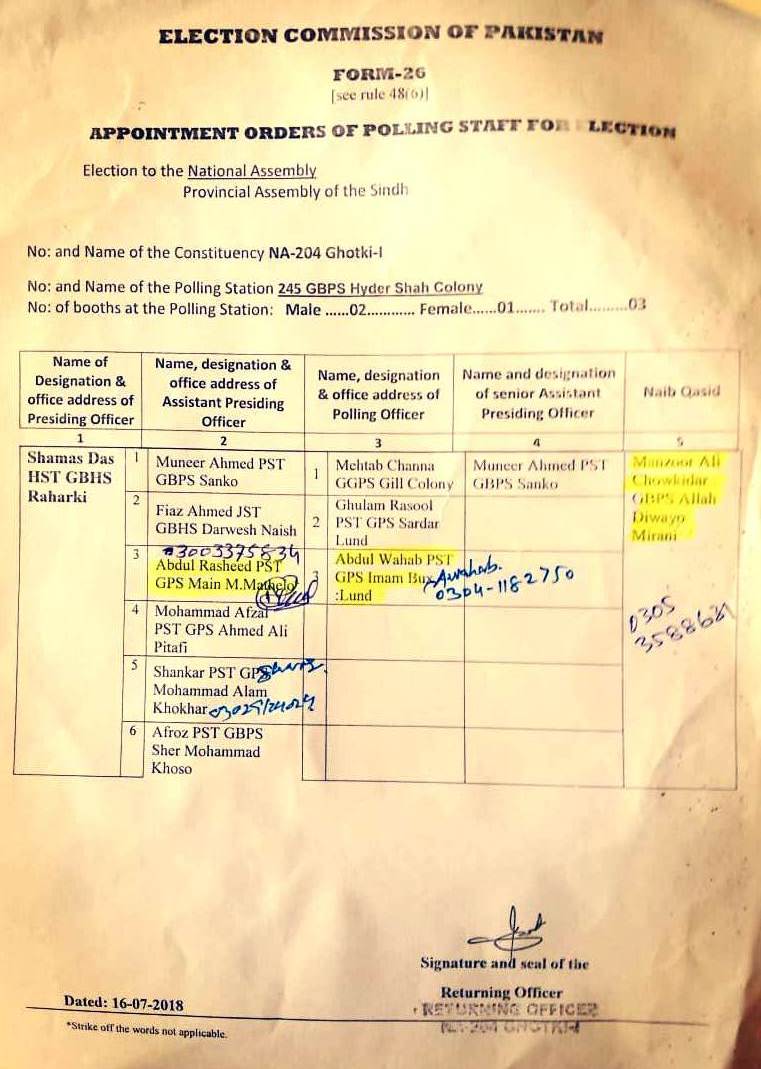 ELECTION COMMISSION OF PAKISTAN
FORM-26
[see rule 48(6)]
APPOINTMENT ORDERS OF POLLING STAFF FOR ELECTION
Election to the National Assembly
Provincial Assembly of the Sindh
No: and Name of the Constituency NA-204 Ghotki-I
No: and Name of the Polling Station 245 GBPS Hyder Shah Colony
No: of booths at the Polling Station: Male ......02............ Female......01....... Total.........03
Name of
Designation &
office address of
Presiding Officer
Name, designation &
office address of
Assistant Presiding
Officer
Name, designation
& office address of
Polling Officer
Name and designation
of senior Assistant
Presiding Officer
Naib Qasid
1
2
3
4
5
Shamas Das
HST GBHS
Raharki
1
Muneer Ahmed PST
GBPS Sanko
2
Fiaz Ahmed JST
GBHS Darwesh Naish
3
03003375834
Abdul Rasheed PST
GPS Main M.Mathelo
4
Mohammad Afzal
PST GPS Ahmed Ali
Pitafi
5
Shankar PST GPS
Mohammad Alam
Khokhar
6
Afroz PST GBPS
Sher Mohammad
Khoso
1
Mehtab Channa
GGPS Gill Colony
2
Ghulam Rasool
PST GPS Sardar
Lund
3
Abdul Wahab PST
GPS Imam Bux
:Lund
Awahab.
0304-1182750
Muneer Ahmed PST
GBPS Sanko
Manzoor Ali
Chowkidar
GBPS Allah
Diwayo
Mirani
0305
Signature and seal of the
Returning Officer
RETURNING OFFICER
NA-204 GHOTKI-I
Dated: 16-07-2018
*Strike off the words not applicable.